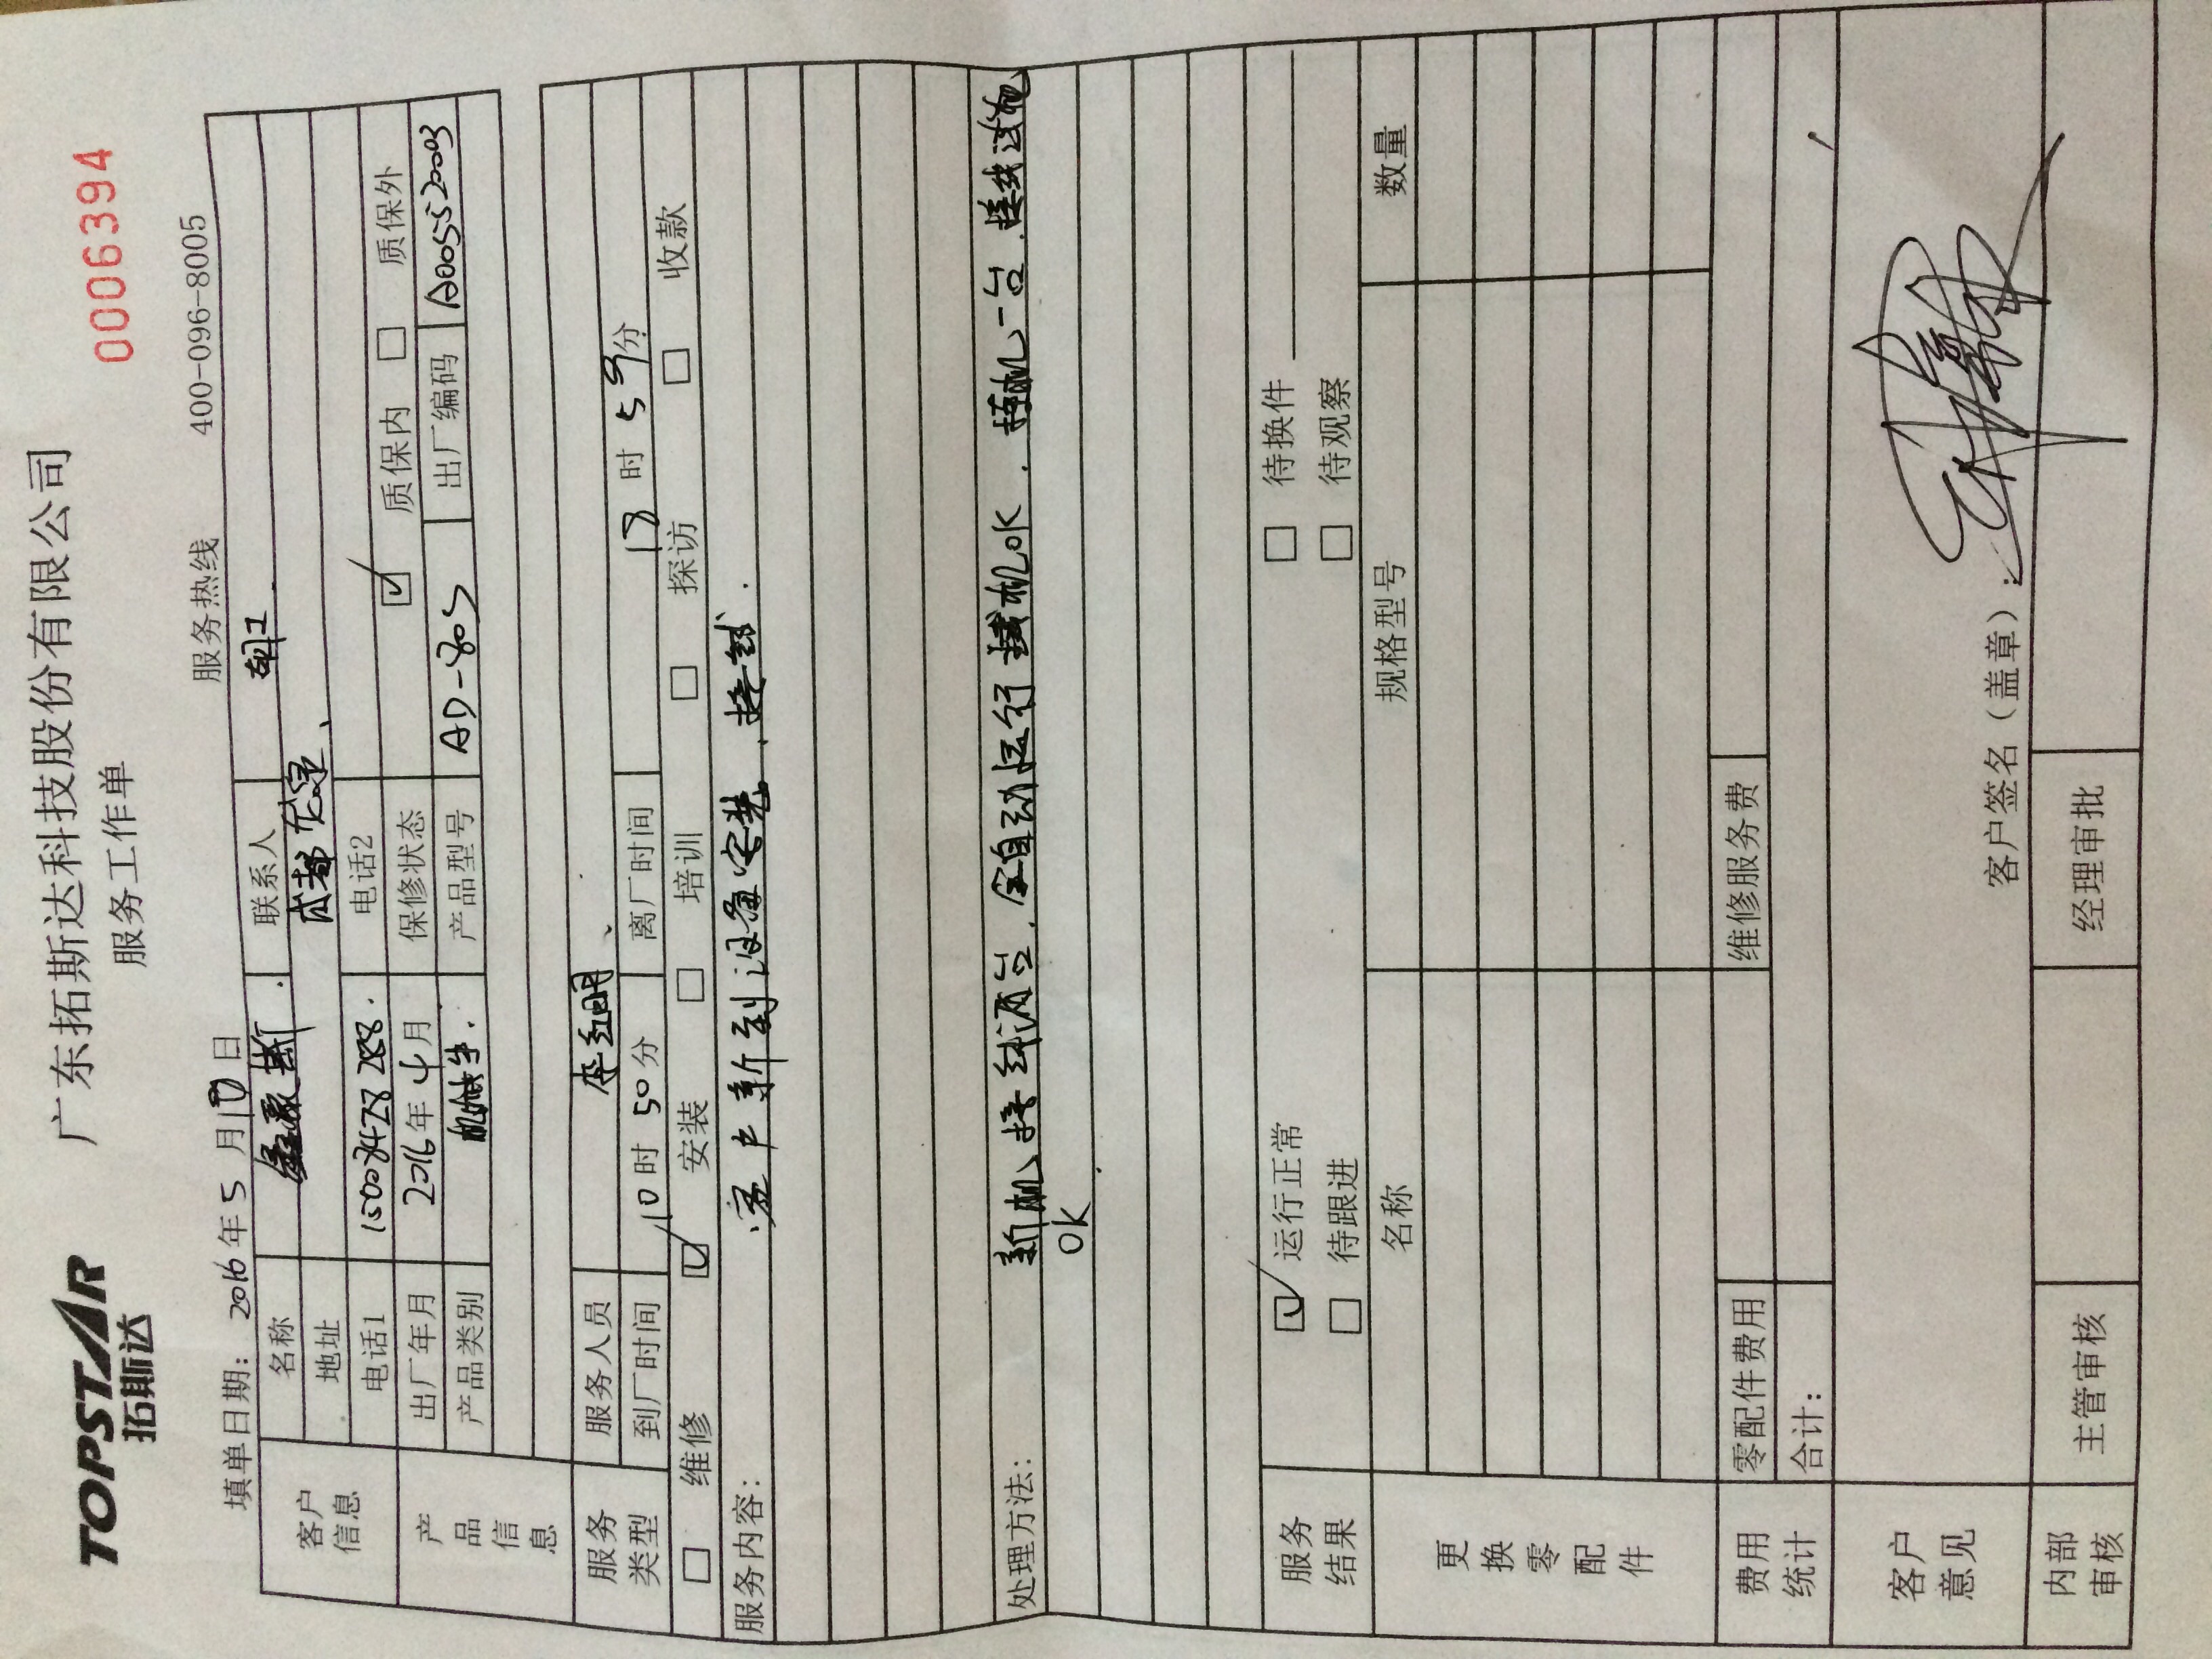 TOPSTAR 拓斯达
广东拓斯达科技股份有限公司
0006394
服务工作单
填单日期：2016年5月
日
服务热线 400-096-8005
客户信息
名称
联系人
地址 成都
电话1
电话2
产品信息
出厂年月 2016年4月
保修状态 质保内 质保外
产品类别 机械手.
产品型号 AD-80S
出厂编码 A005520003
服务类型
服务人员
到厂时间 10时50分
离厂时间
时 59分
维修 安装 培训 探访 收款
服务内容： 客户新到设备安装、接线.
处理方法： 新机接线
台，全自动运行
机OK，
机一台.接线试
OK
服务结果
运行正常 待换件
待跟进 待观察
更换零配件
名称 规格型号 数量
费用统计
零配件费用 维修服务费
合计：
客户意见
客户签名（盖章）：
内部审核
主管审核 经理审批